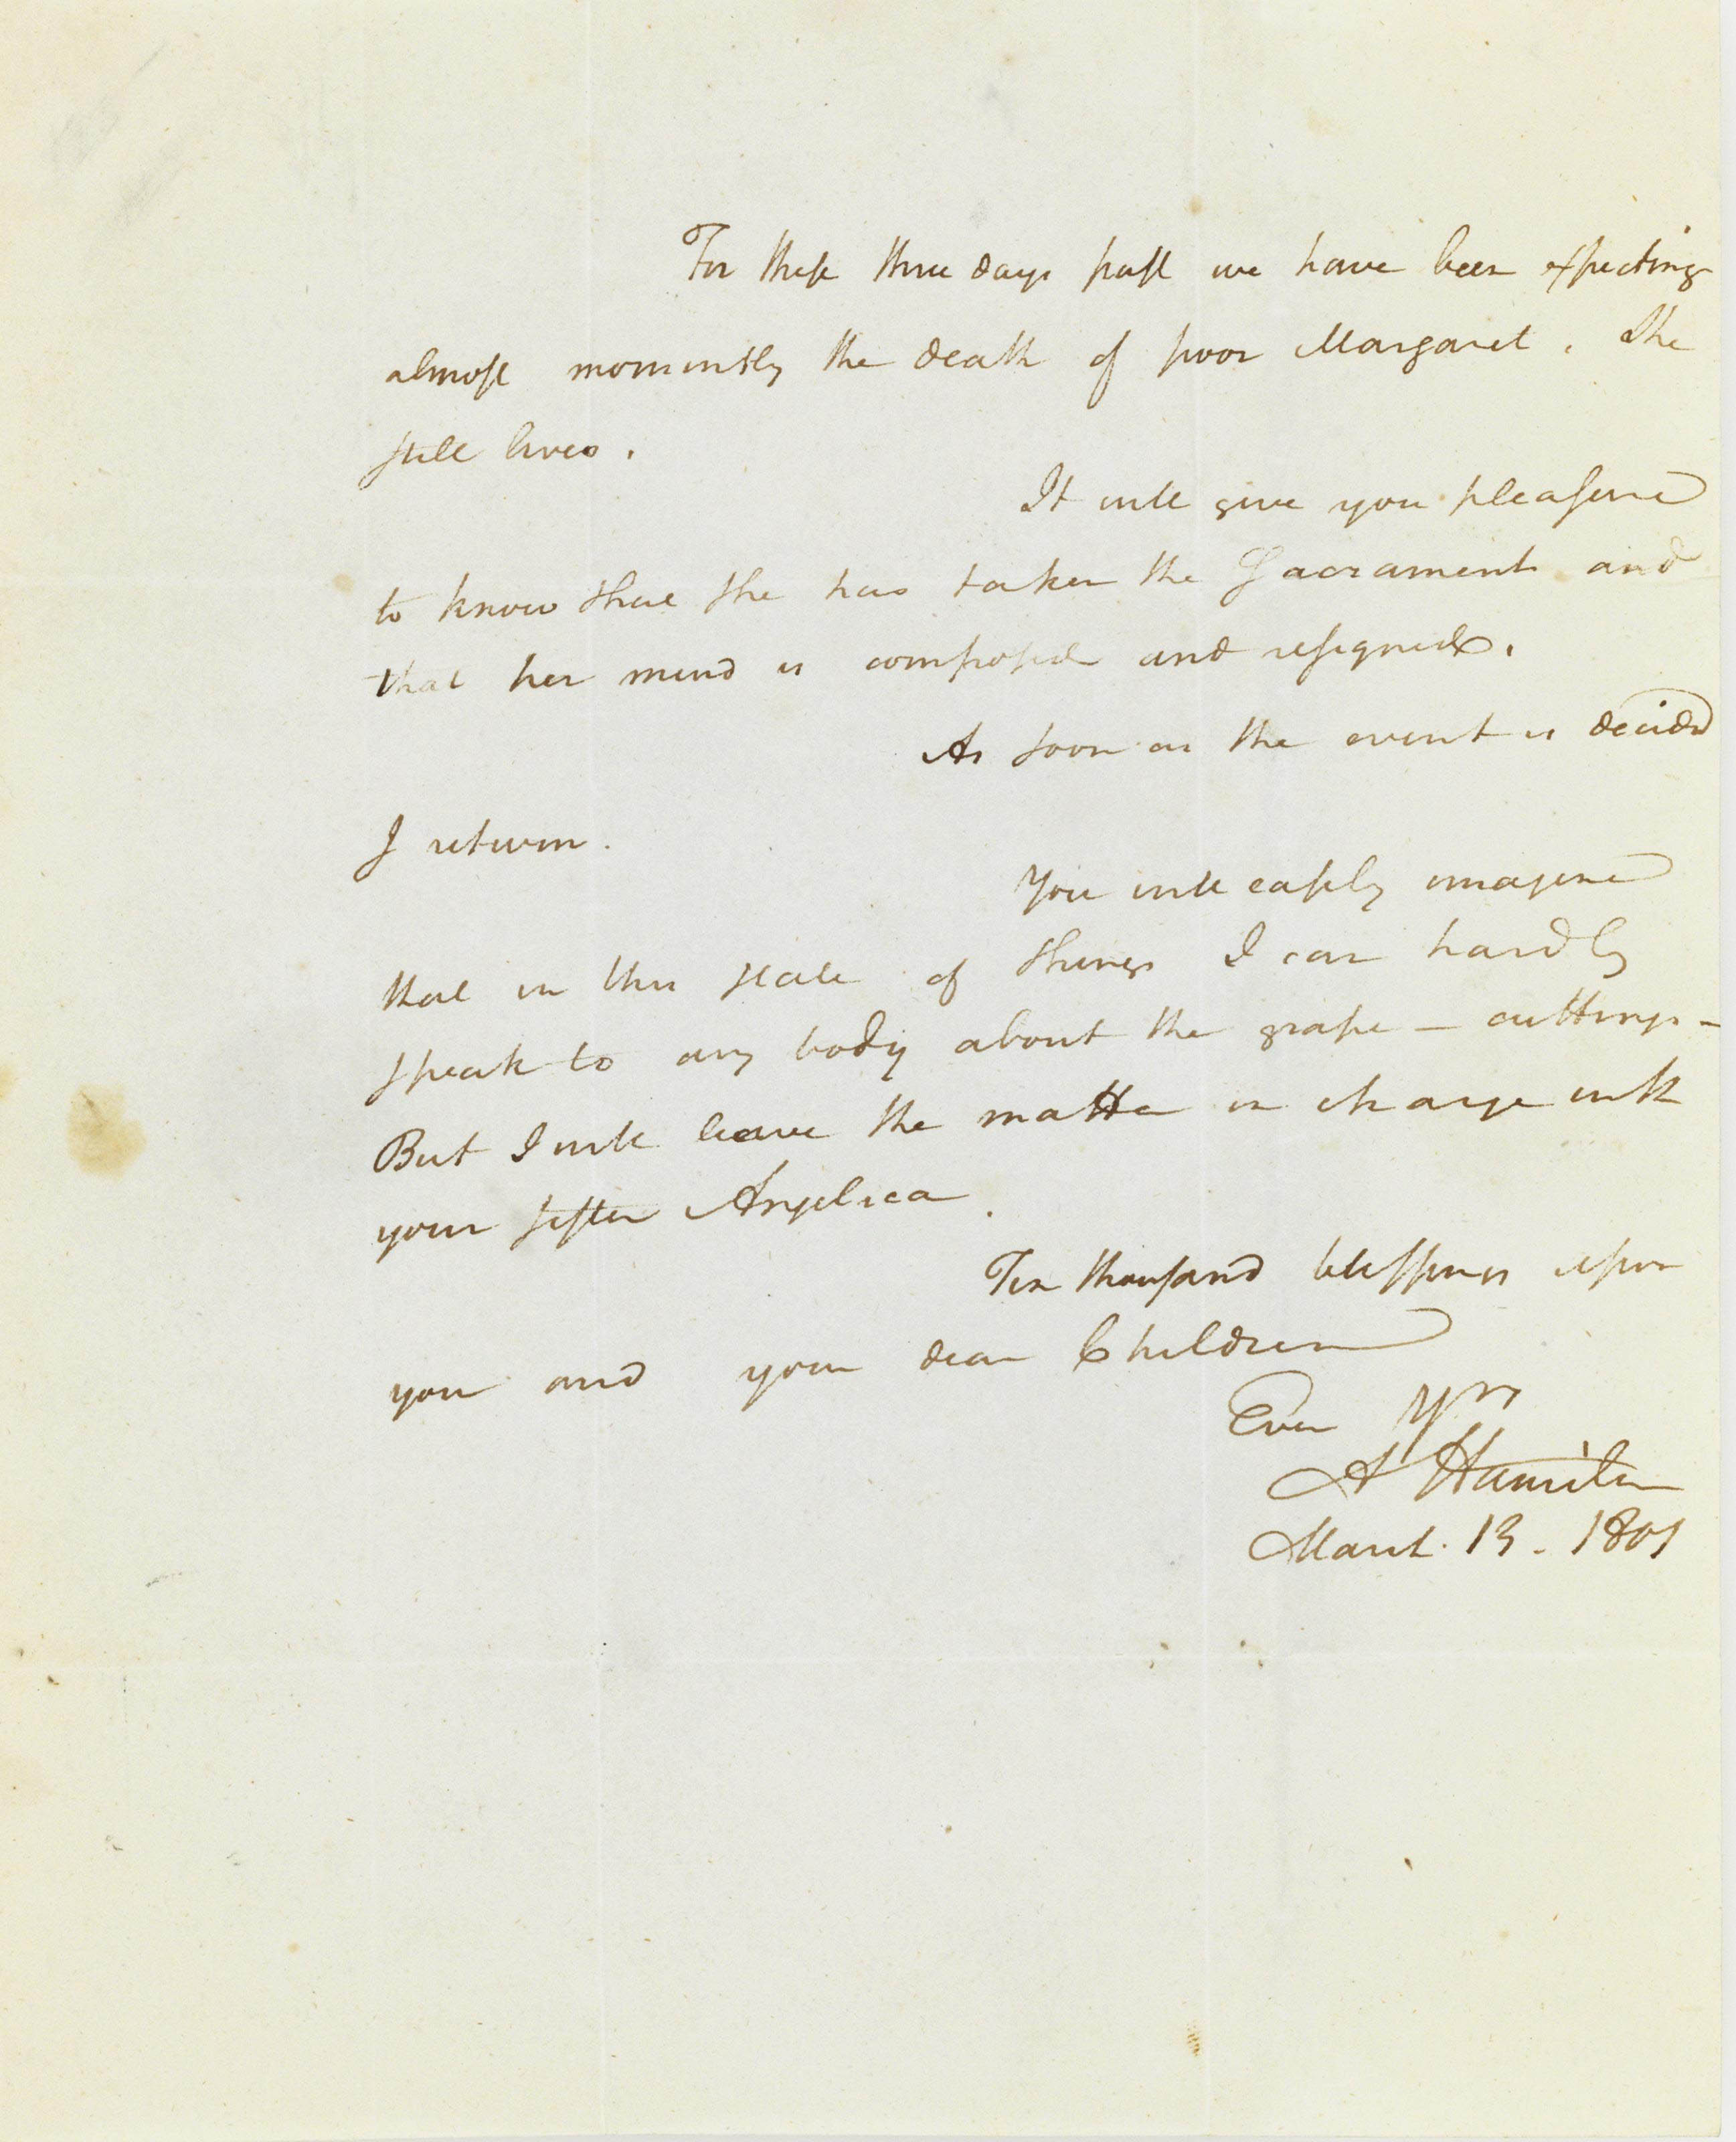 For these three days past we have been expecting
almost momently the death of poor Margaret. She
still lives.
It will give you pleasure
to know that she has taken the Sacrament and
that her mind is composed and resigned.
As soon as the event is decided
I return.
You will easily imagine
that in this state of things I can hardly
speak to any body about the grape – cuttings –
But I will leave the matter in charge with
your sister Angelica.
Ten thousand blessings upon
you and your dear Children
Ever Yrs
A Hamilton
March. 13. 1801